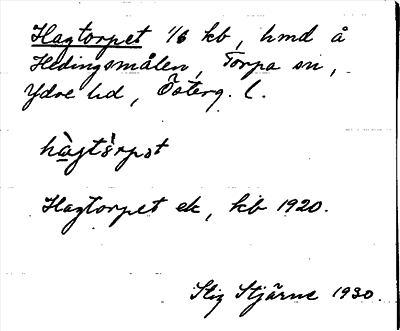 Hagtorpet 1/6 kb, hmd å
Hedingsmålen, Torpa sn,
Ydre hd, Österg. l.
Hagtorpet ek, kb 1920.
Stig Stjärne 1930.